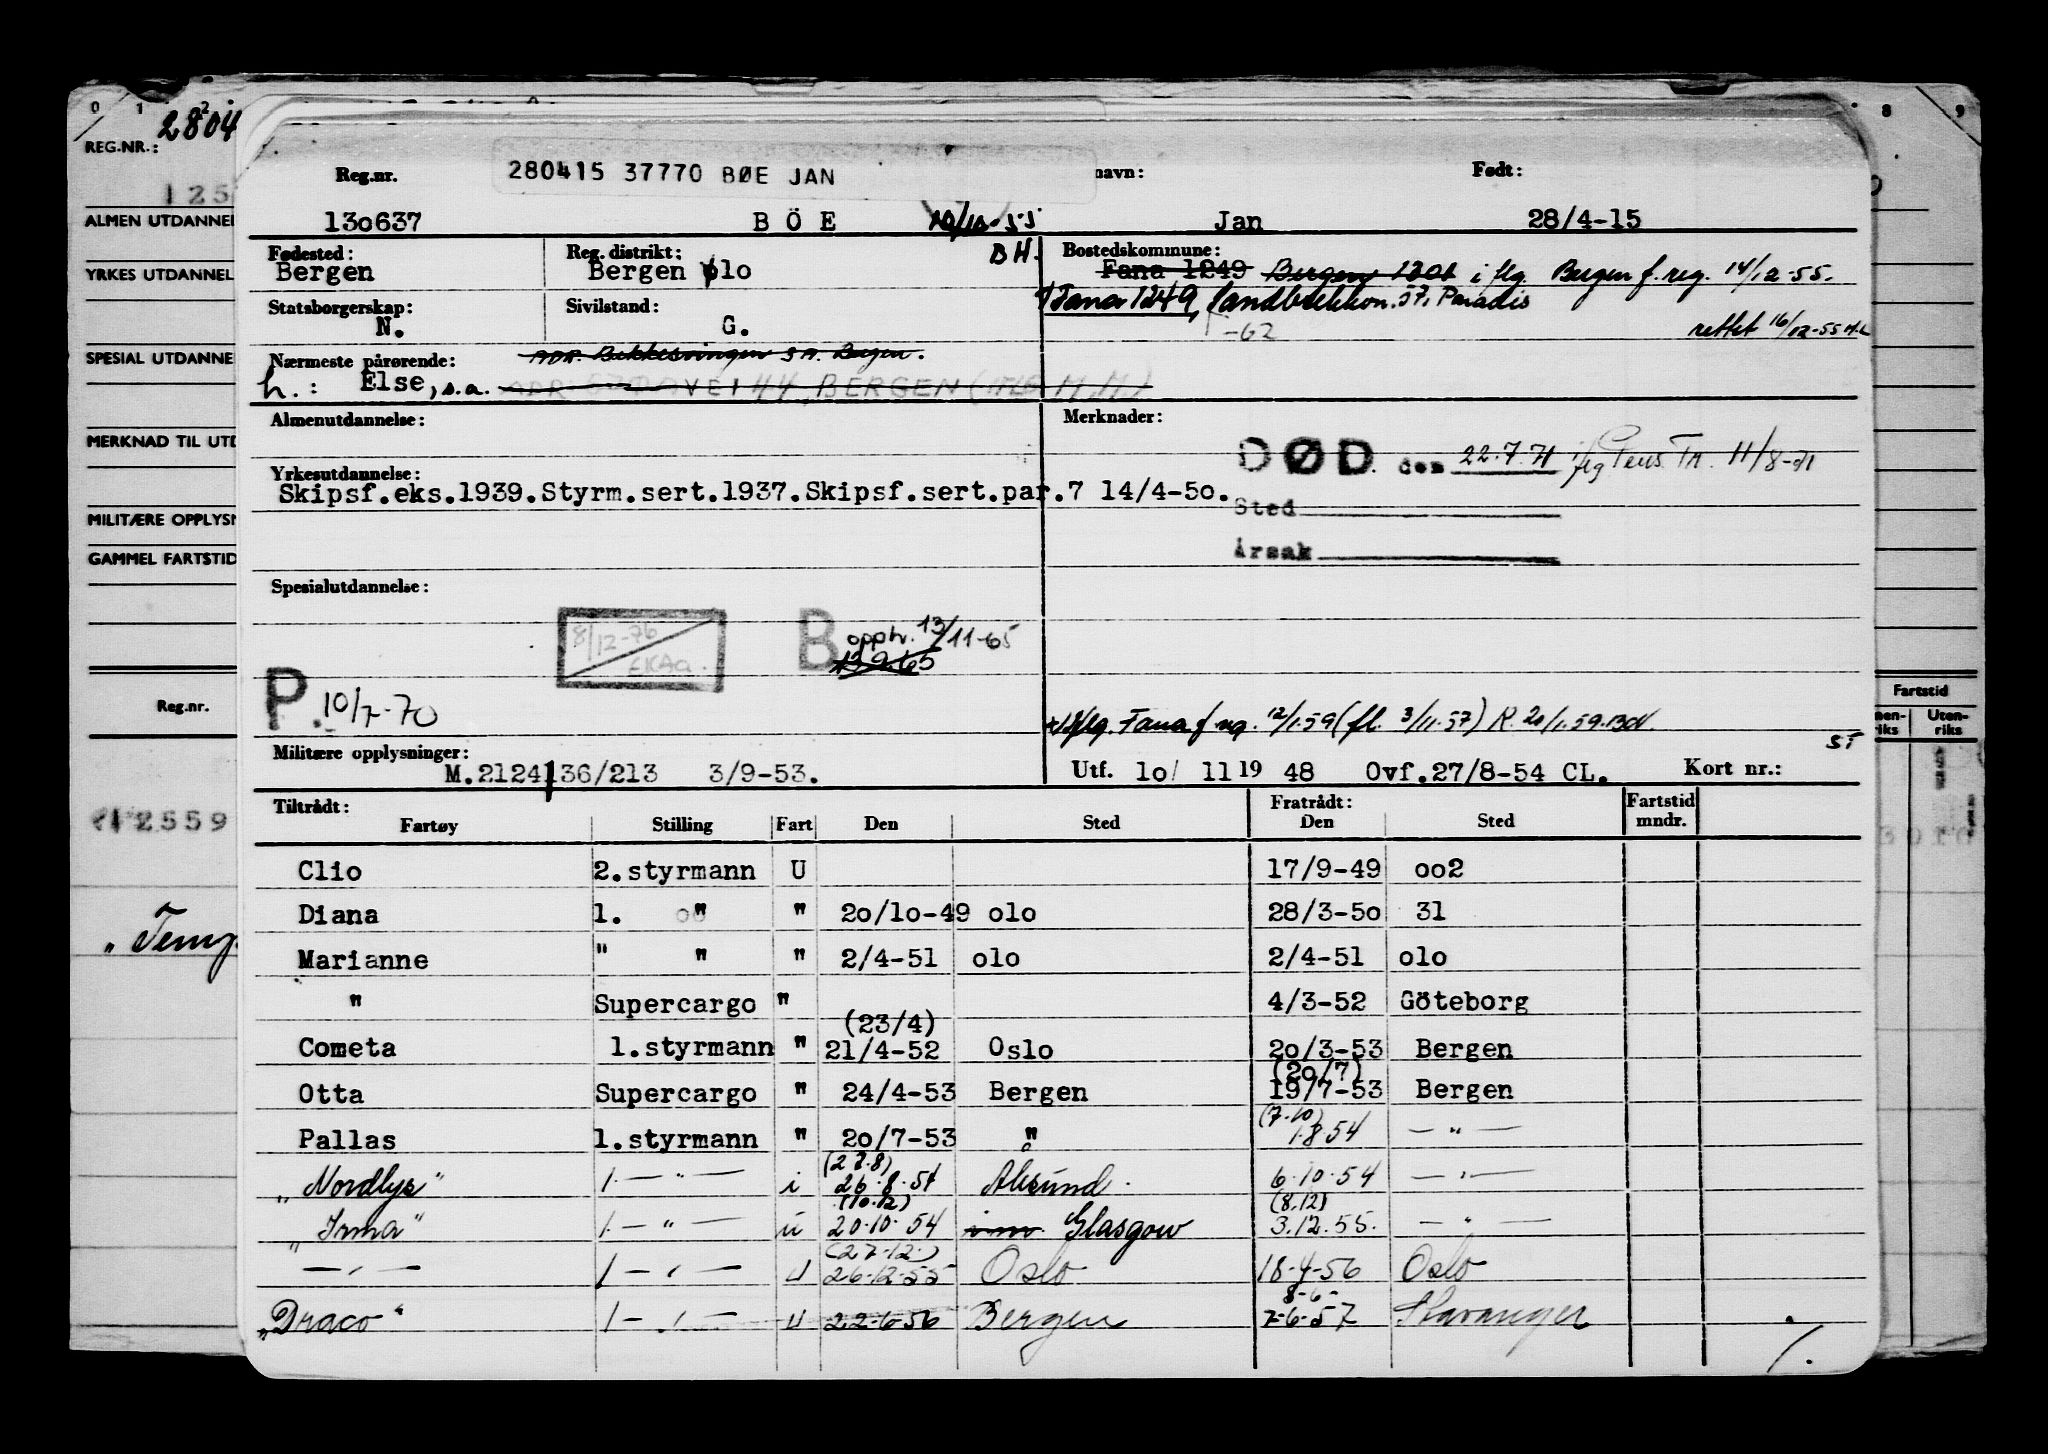 0 1 2 8 9
2804
REG.NR.:
125
ALMEN UTDANNEL
YRKES UTDANNEL
SPESIAL UTDANNE
MERKNAD TIL UTD
MILITÆRE OPPLYSN
GAMMEL FARTSTID
Reg.nr.
12559
„Temp
Fartstid
Uten-
riks
Reg.nr. 280415 37770 BØE JAN navn: Født:
130637 BÖE 10/12-55 Jan 28/4-15
Fødested: Reg. distrikt: BH. Bostedskommune:
Bergen Bergen olo Fana 1249 Bergen 1301 iflg Bergen f.reg. 14/12-55.
Statsborgerskap: Sivilstand: Fana 1249, Sandbrekkvn. 57, Paradis
N. G. -62 rettet 16/12-55
Nærmeste pårørende: ADR. Bekkesvingen 3A. Bergen.
h.: Else, s.a.
BERGEN
Almenutdannelse: Merknader:
DØD. den 22.7.71 iflg Pens. Tr. 11/8-71
Yrkesutdannelse:
Skipsf.eks.1939.Styrm.sert.1937.Skipsf.sert.par.7 14/4-5o.
Sted
Årsak
Spesialutdannelse:
8/12-76
B opph. 13/11-65
13.9.65
P. 10/7-70
Iflg. Fana f.reg. 12/1.59 (fl. 3/11.57) R. 20/1.59.
ST
Militære opplysninger:
M.2124136/213 3/9-53. Utf. lo/ 11 19 48 Ovf.27/8-54 CL. Kort nr.:
Tiltrådt: Fratrådt: Fartstid
Fartøy Stilling Fart Den Sted Den Sted mndr.
Clio 2.styrmann U 17/9-49 oo2
Diana 1. " " 2o/1o-49 olo 28/3-5o 31
Marianne " " " 2/4-51 olo 2/4-51 olo
" Supercargo " 4/3-52 Göteborg
(23/4)
Cometa 1.styrmann " 21/4-52 Oslo 2o/3-53 Bergen
(2o/7)
Otta Supercargo " 24/4-53 Bergen 19/7-53 Bergen
(7.10)
Pallas 1.styrmann " 2o/7-53 " 1.8.54 — " —
(27.8)
„Nordlys" 1. — " — i 26.8.54 Ålesund. 6.10.54 — " —
(10.12) (8.12)
„Irma" 1 — " — u 20.10.54 Glasgow 3.12.55. — " —
(27.12.)
— " — 1 — " — u 26.12.55 Oslo 18.4-56 Oslo
8-6-
„Draco" 1 — " — u 22-6-56 Bergen 7-6-57 Stavanger
/.